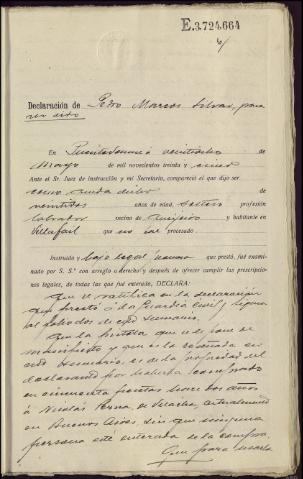 E.3.724.664
Declaración de Pedro Marcos Silvar, para
ser oido
En Puentedeume a veintiocho de
Mayo de mil novecientos treinta y cinco
Ante el Sr. Juez de Instrucción y mi Secretaría, compareció el que dijo ser
como queda dicho de
veintidos años de edad, soltero profesión
labrador vecino de y habitante en
Villafail que no fué procesado.
Instruído y bajo legal que prestó, fué exami-
nado por S. Sª con arreglo a derecho y después de ofrecer cumplir las prescripcio-
nes legales, de todas las que fué enterado, DECLARA:
Que se ratifica en la declaración
que prestó á la Guardia Civil y figura
al folio dos de este sumario.
Que la pistola que se le pone de
manifiesto y que es la reseñada en
este sumario, es de la propiedad del
declarante por haberla comprado
en cincuenta pesetas hace dos años
á Nicolás Perna, de Vilacha, actualmente
en Buenos Aires, sin que ninguna
persona esté enterada de la compra.
Que para usarla